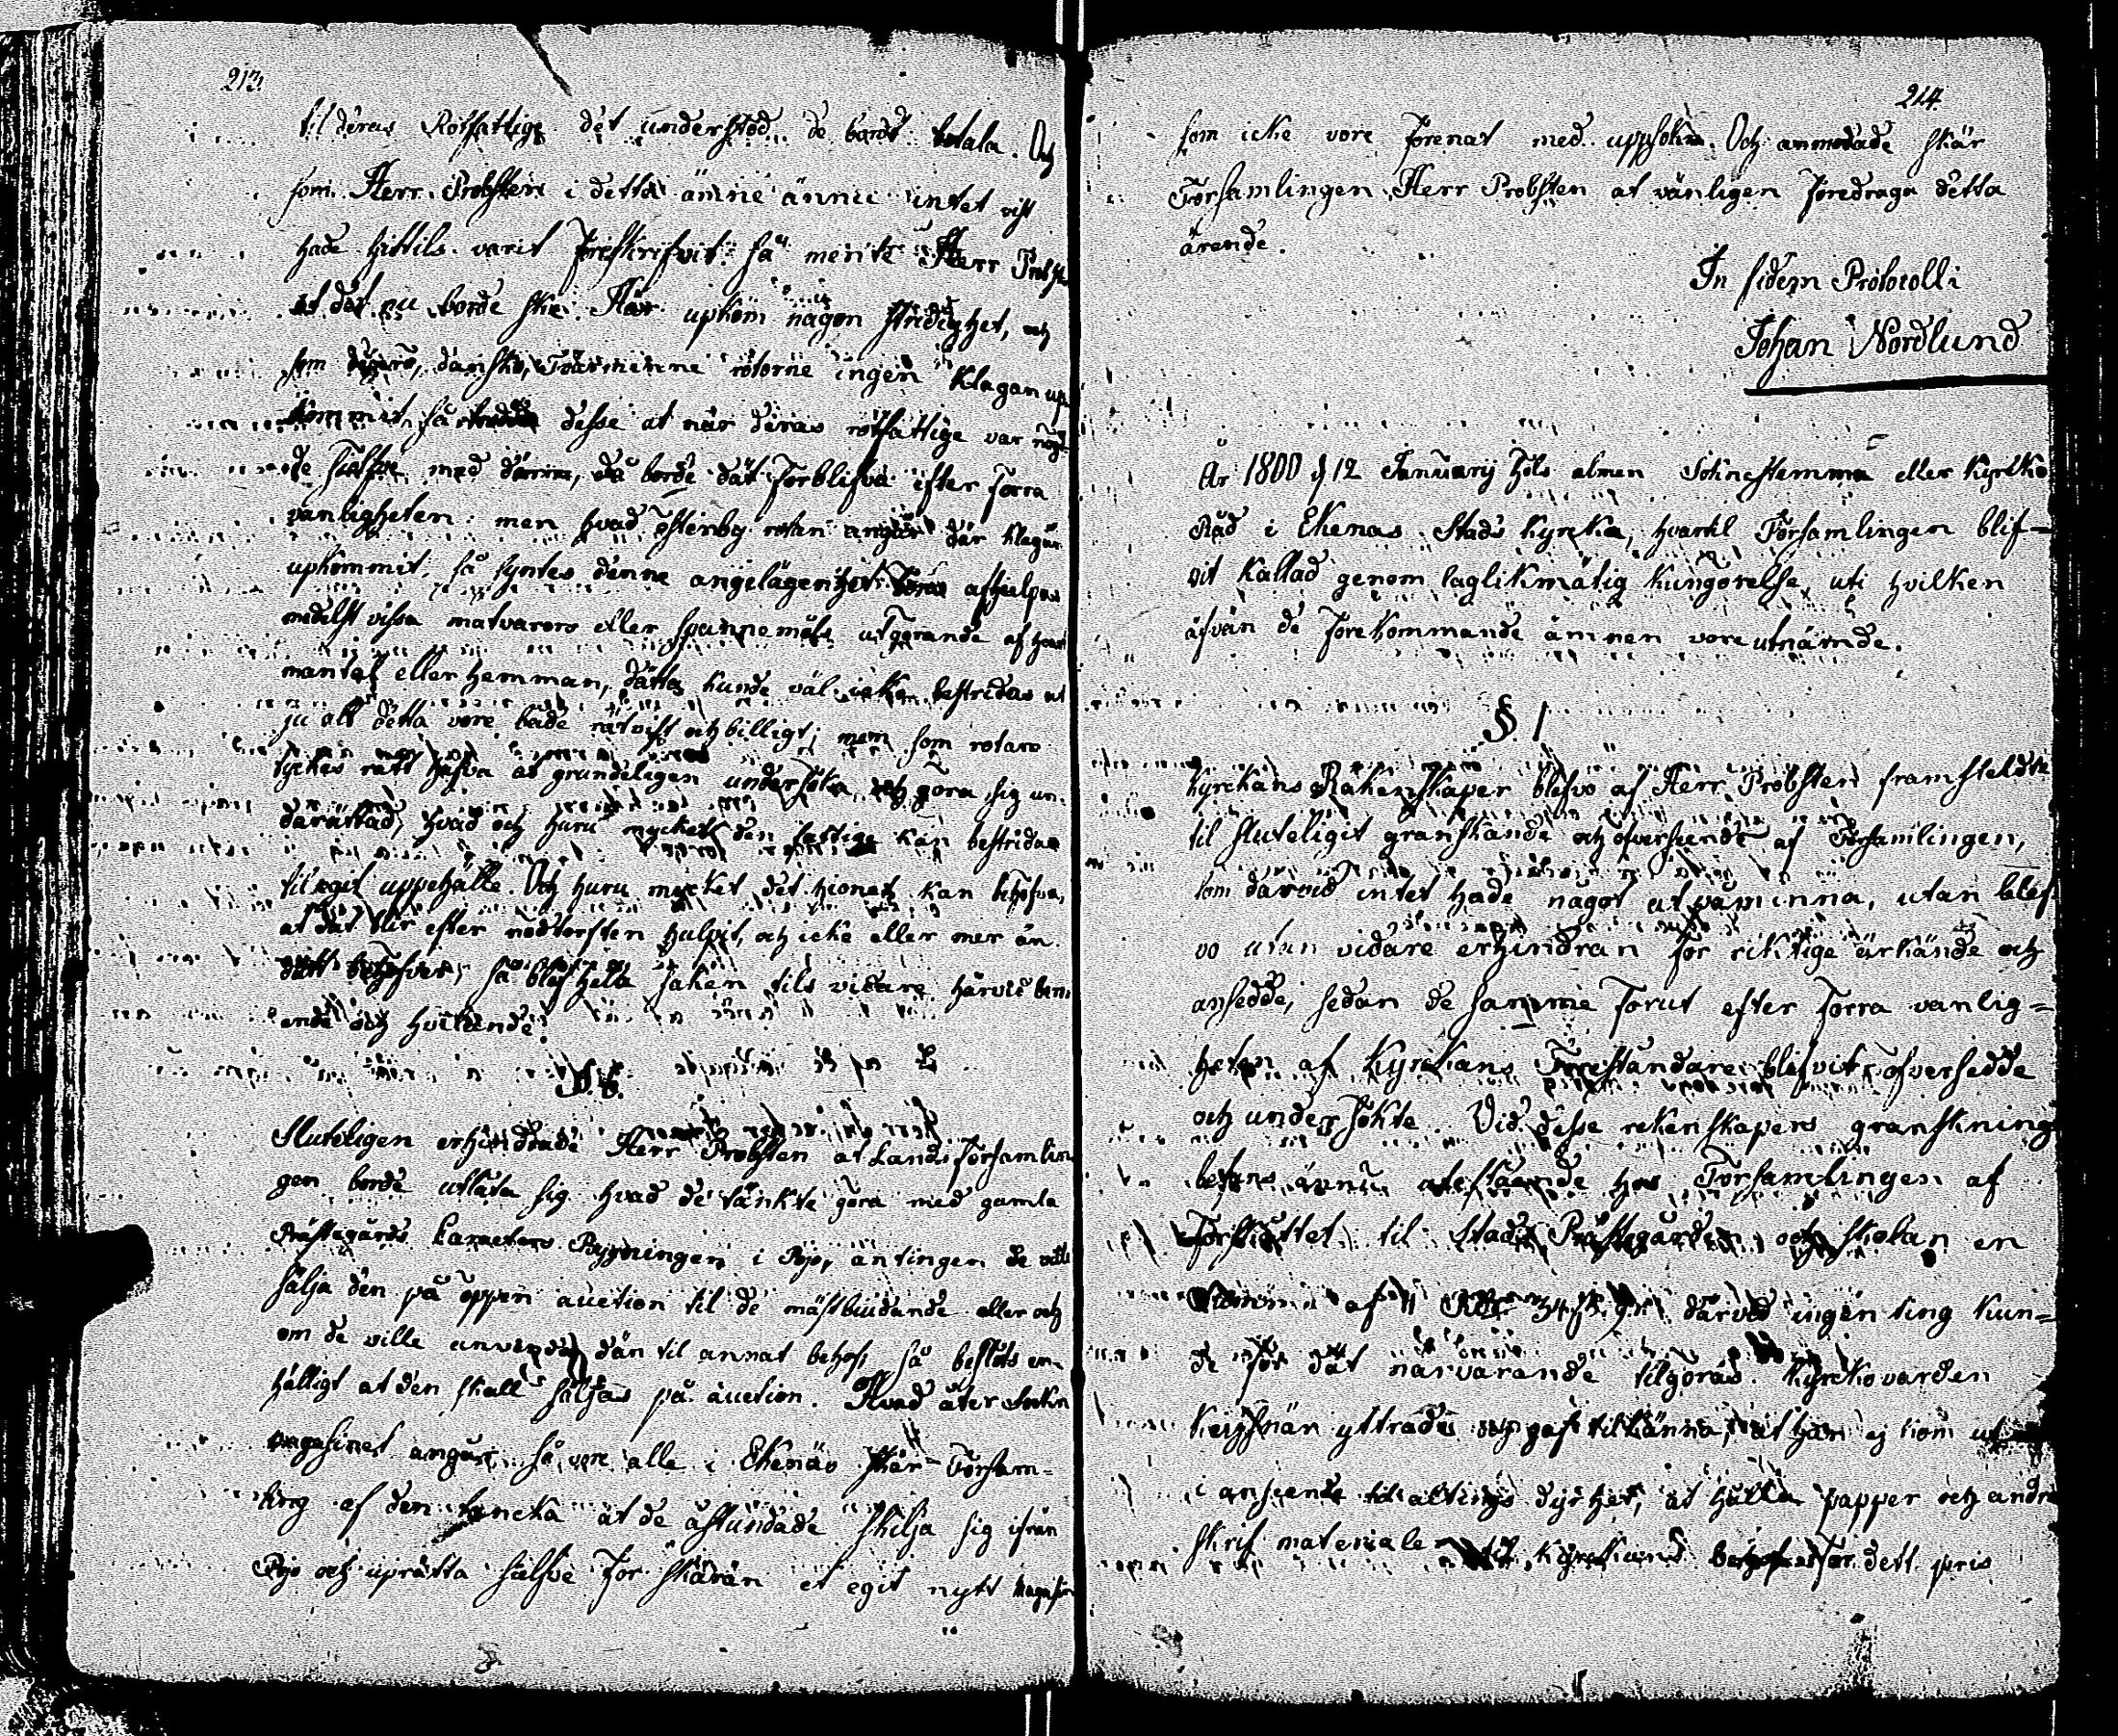 213.
til deras Rotfattige det understöd de bordt betala. Och
som Herr Probsten i detta ämne ännu intet vist
hade hittils varit föreskrifvit. så mente Herr Probst
at det nu borde ske. Här upkom någon stridighet, och
som danska, Tvärminne rotorne ingen klagan up-
kommit, så desse at när deras rotfattige var nögd
de sielfve med, då borde dät förblifva efter förra
vanligheten: men hvad österby rotan angår där klagan
upkommit, så syntes denne angelägenhet afhielpas
medelst vissa matvaror eller spannemåls utgörande af hvart
mantal eller hemman, dätta kunde väl icke bestridas at
ju alt detta vore både rätvist och billigt; men som rotarne
tyckes rätt hafva at grundeligen undersöka, och göra sig un-
därättad, hvad och huru mycket den fattige kan bestrida
til egit uppehälle. Och huru mycket det hionet kan behöfva,
at dät blir efter nödtorften hulpit, och icke eller mer än
dätt behöfver, så blef hela saken tils vidare härvid bero-
ende och hvilande.
Sluteligen erhindrade Herr Probsten at Lands Församlin-
gen borde utlåta sig hvad de tänkte göra med gamla
Prästegårds Byggningen i Pojo, antingen de ville
sälja den på öppen auction til de mästbiudande eller och
om de ville använda dän til annat behof, så beslöts en-
hälligt at den skall säljas på auction. Hvad åter Sockn
magasinet angår, så vore alle i Ekenäs skär Försam-
ling af den tancka at de åstundade skilja sig ifrån
Pojo och uprätta sielfve för skären et egit nytt magasin
214.
som icke vore förenat med uppsokn. Och anmodade skär
Församlingen Herr Probsten at vänligen föredraga detta
ärende.
In fidem Protocolli
Johan Nordlund
År 1800 d 12 Januarij höls almen Soknestemma eller Kyrko
Råd i Ekenas Stads Kyrka, hvartil Församlingen blif-
vit Kallad genom laglikmätig kungörelse, uti hvilken
äfvän de förekommande ämnen vore utnämde.
§. 1
Kyrkans Räkenskaper blefvo af Herr Probsten framstelde
til sluteligit granskande och öfverseende af Församlingen,
som därvid intet hade något at påminna, utan blef-
vo utan vidare erhindran för riktige ärkände och
ansedde, sedan de samme förut efter förra vanlig-
heten af Kyrkans Föreståndare blifvit öfversedde
och undersökte. Vid desse rekenskapers granskning
befans ännu återstående hos Församlingen af
Förskottet til Stads Prästegården och skolan en
Summa af därvid ingen ting kun-
de för dät närvarande tilgöras. Kyrkovärden
yttrade och gaf tilkänna, at han ej kom ut
i anseende til altings dyrhet, at hålla papper och andra
skrif materialer til Kyrkans behof för dett pris